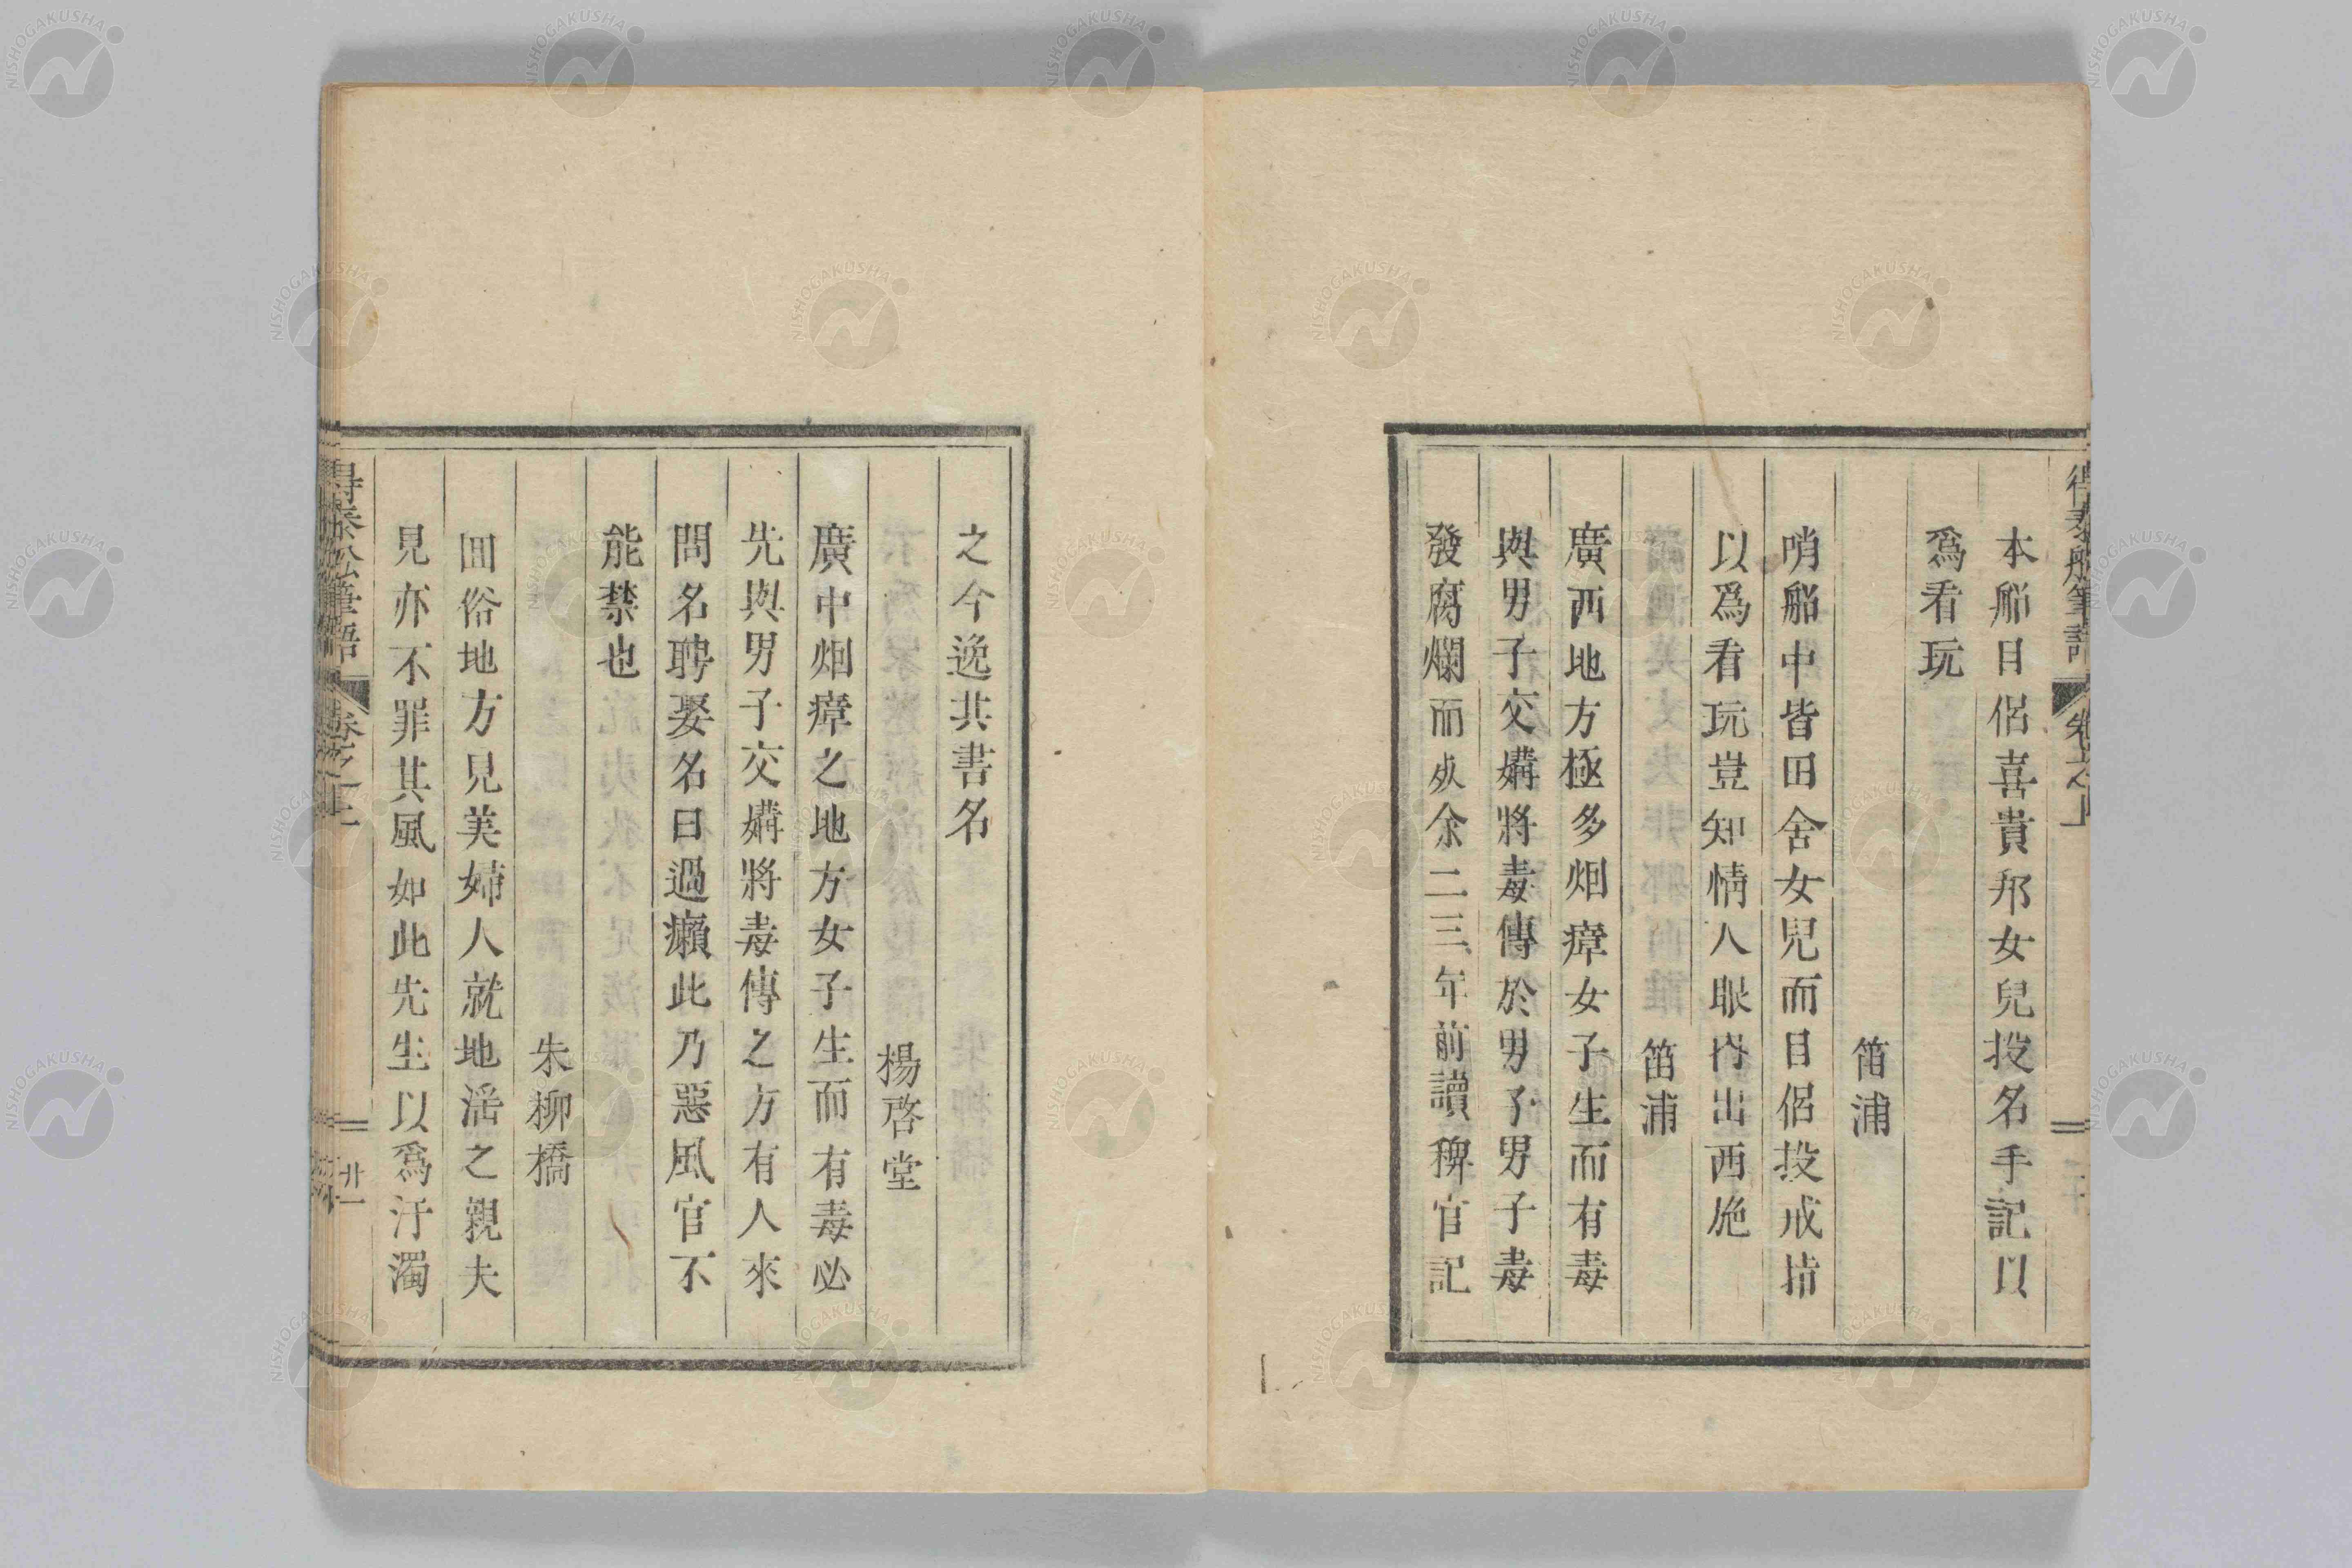 本船目侶喜貴邦女兒投名手記以
爲看玩
笛浦
哨船中皆田舍女兒而目侶投戒指
以爲看玩豈知情人眼内出西施
笛浦
廣西地方極多烟瘴女子生而有毒
與男子交媾將毒傳於男子男子毒
發腐爛而死余二三年前讀稗官記
之今逸其書名
楊啓堂
廣中烟瘴之地方女子生而有毒必
先與男子交媾將毒傳之方有人來
問名聘娶名曰過癩此乃惡風官不
能禁也
朱柳橋
回俗地方見美婦人就地滛之親夫
見亦不罪其風如此先生以爲汙濁
得泰船筆語 卷之上 廿一
NISHOGAKUSHA